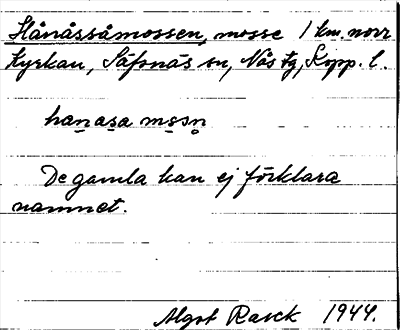 Hånåssåmossen, mosse 1 km. norr
Kyrkan, Säfsnäs sn, Nås tg, Kopp. l.
hanasa mssn
De gamla kan ej förklara
namnet.
Algot Rasck 1944.